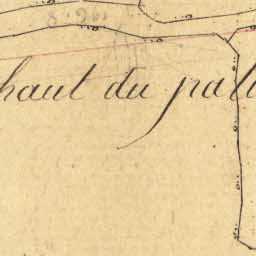 haut du pall